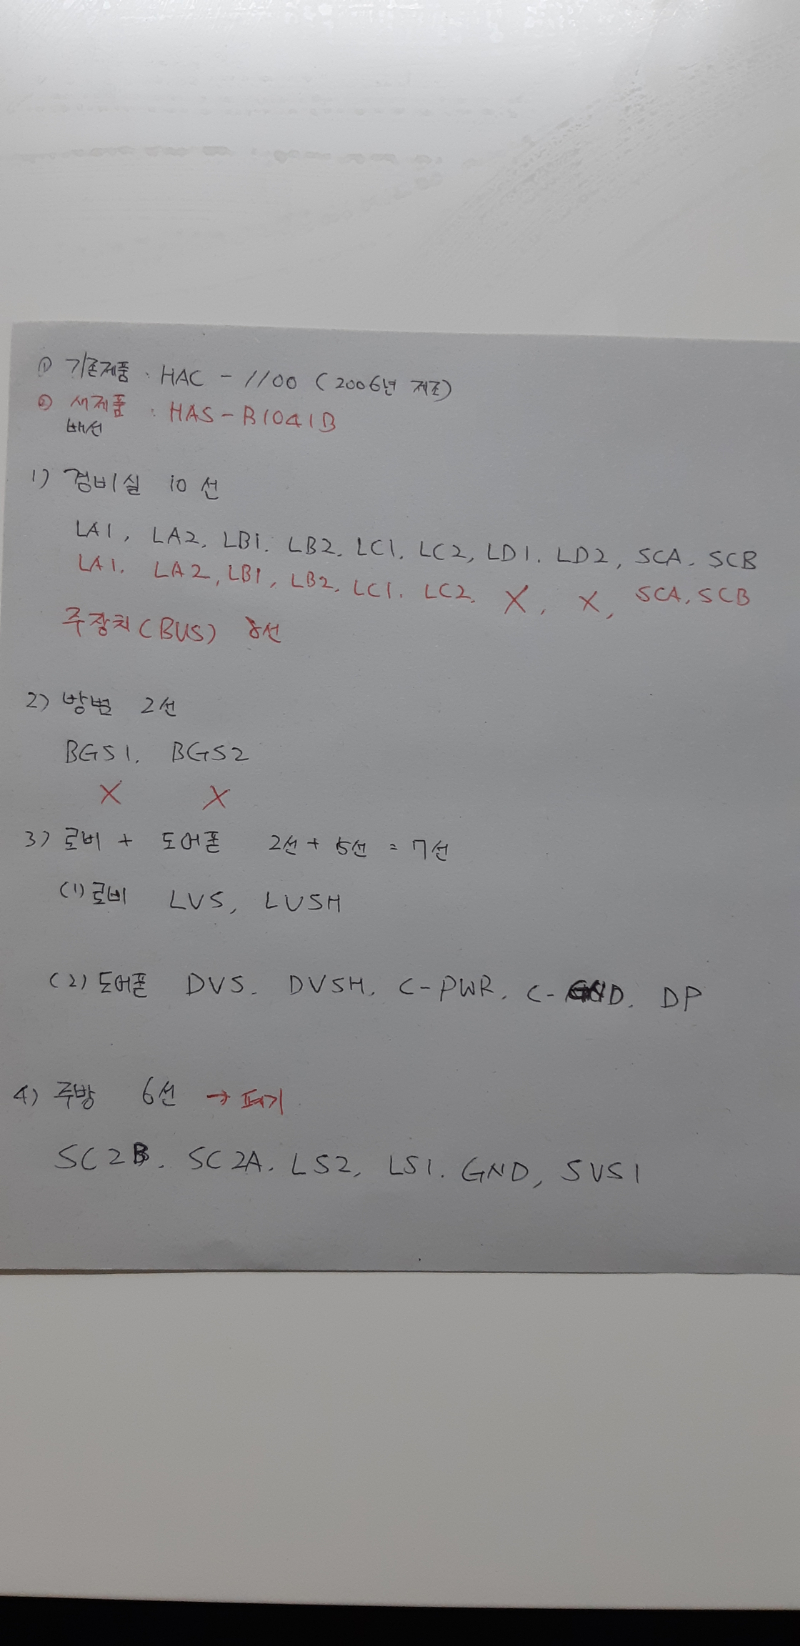 ① 기존제품 · HAC - 1100 (2006년 제조)
② 새제품 : HAS - B1041B
배선
1) 경비실 10선
LA1, LA2, LB1. LB2. LC1. LC2, LD1. LD2, SCA. SCB
LA1. LA2, LB1, LB2. LC1. LC2. X, X, SCA, SCB
주장치(BUS) 8선
2) 방범 2선
BGS1. BGS2
X X
3) 로비 + 도어폰 2선 + 5선 = 7선
(1) 로비 LVS, LVSH
(2) 도어폰 DVS. DVSH. C-PWR. C-GND. DP
4) 주방 6선 → 폐기
SC2B. SC2A. LS2, LS1. GND, SVS1